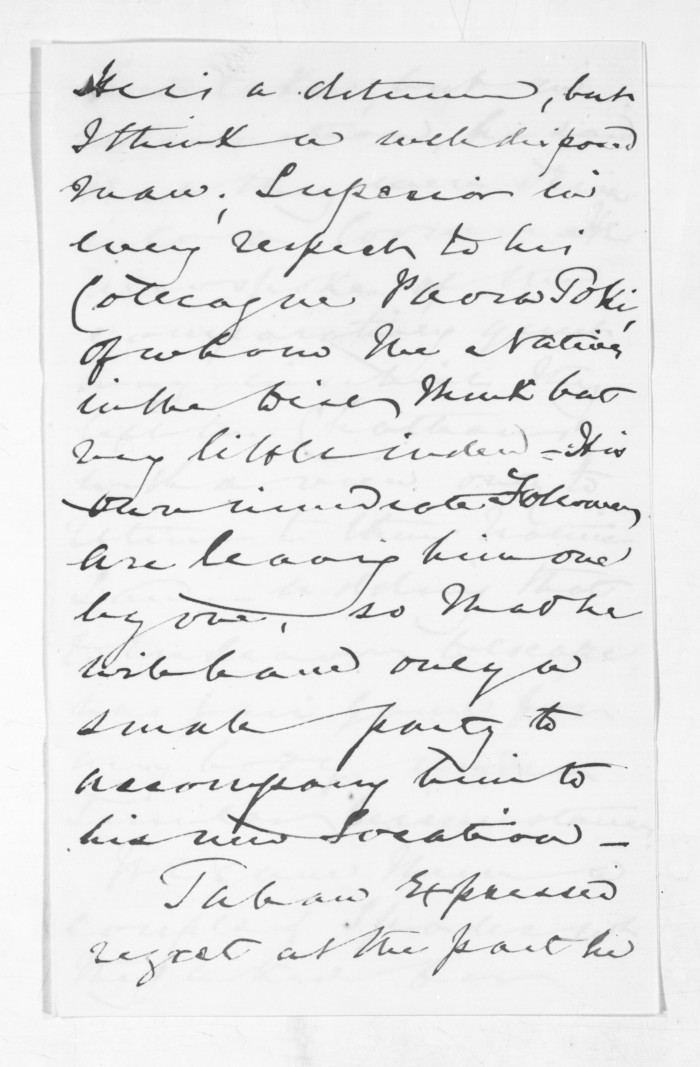 He is a determined, but
I think a well disposed
man; Superior in
every respect to his
Coleague Paora Toki,
of whom the Natives
in the Wise think but
very little indeed - His
own immediate Followers
are leaving him one
by one, so that he
will have only a
small party to
accompany him to
his new Location -
Tahau Expressed
regret at the part he